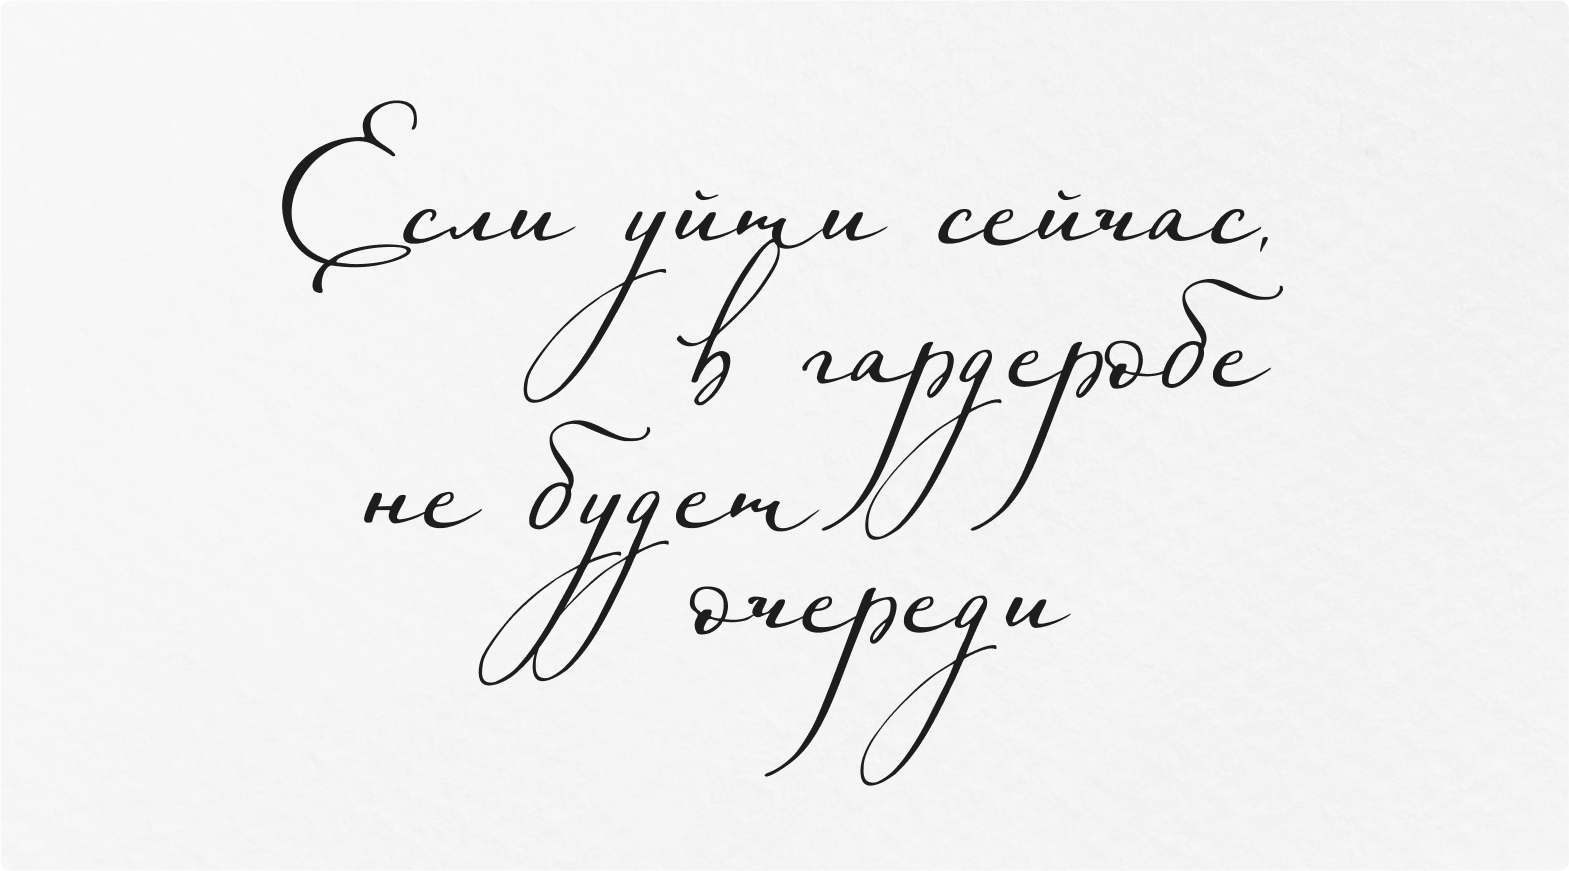 Если уйти сейчас,
в гардеробе
не будет
очереди